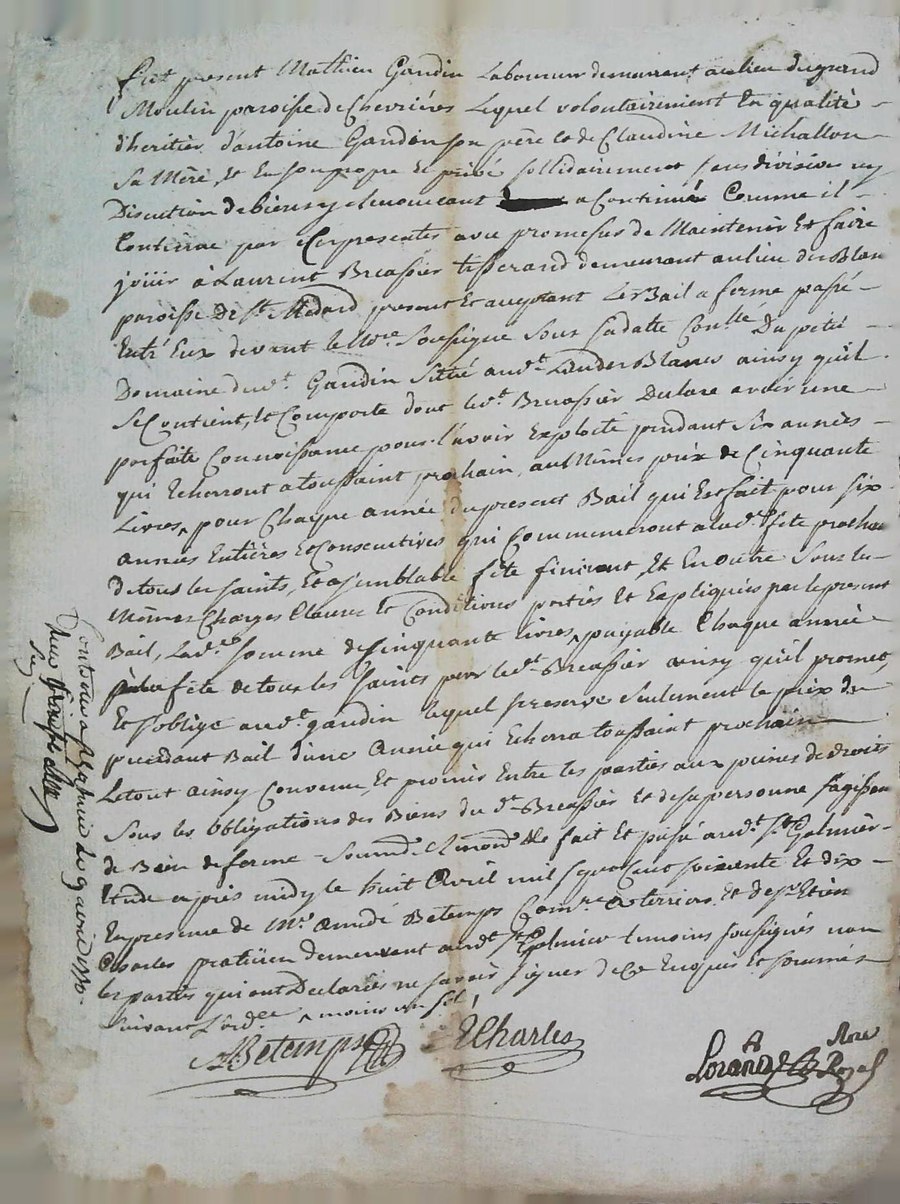 fut présent Mathieu Gaudin Laboureur demeurant au lieu du grand
Moulin paroisse de Chevrières Lequel volontairement En qualité
d'heritier d'antoine Gaudin son père et de Claudine Michallon
Sa Mère, Et En son propre Et privé sollidairement sans division ny
Discution de biens y renoncant a Continué Comme il
Continue par Ces presentes avec promesses de Maintenir Et faire
joüir à Laurent Breassier tisserand demeurant au lieu des Blan
paroisse De St. Medard, present Et acceptant Le Bail a ferme passé
Entré Eux devant le Nre Soussigné Sous Sa datte Conllé Du petit
Domaine dud.t Gaudin Sittué aud.t Lieu des Blancs ainsy quil
Se Contient, et Comporte dont led.t Breassier Declare avoir une
parfaite Connoissance pour l'avoir Exploité pendant Six années
qui Echerront a toussaint prochain, au Mêmes prix de Cinquante
Livres, pour Chaque année du present Bail qui Est fait pour six
années Entières Et Consecutives qui Commenceront a lad.e fête prochne
de tous les saints, Et a semblable fête finiront, Et En outre Sous les
Mêmes Charges Clauses Et Conditions portées Et Expliquées par le present
Bail, Lad.e somme de Cinquante livres, payable Chaque année
fête de tous les Saints par led.t Breassier ainsy quil promet,
Et s'oblige aud.t gaudin lequel se reserve seulement le prix du
precedant Bail d'une Année qui Echerra toussaint prochain
Le tout ainsy Convenu, Et promis Entre les parties aux peines de droits
Sous les obligations des Biens du d.t Breassier Et de sa personne s'agissan
de Bien de ferme fait Et passé aud.t St. Galmier
Etude après midy le huit Avril mil sept Cent soixante Et dix
En presence de Mr. Amidé Betemps Com.re a terriers, et de sr. Etien
Charles praticien demeurant aud.t St Galmier temoins soussignés non
les partis qui ont Declarées ne savoir signer de Ce Enquis Et sommés
suivant L'ord.ce
ABetemps
ECharles
A
Nore
Royal
Controllé a St galmier le 9 avril 1770